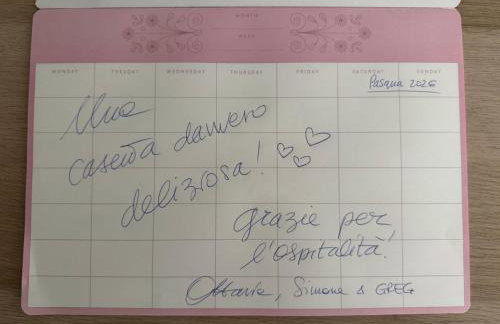 MONTH
WEEK
MONDAY TUESDAY WEDNESDAY THURSDAY FRIDAY SATURDAY SUNDAY
Pasqua 2026
Una
casetta davvero
deliziosa!
grazie per
l'ospitalità!
Ottavia, Simone & GREG